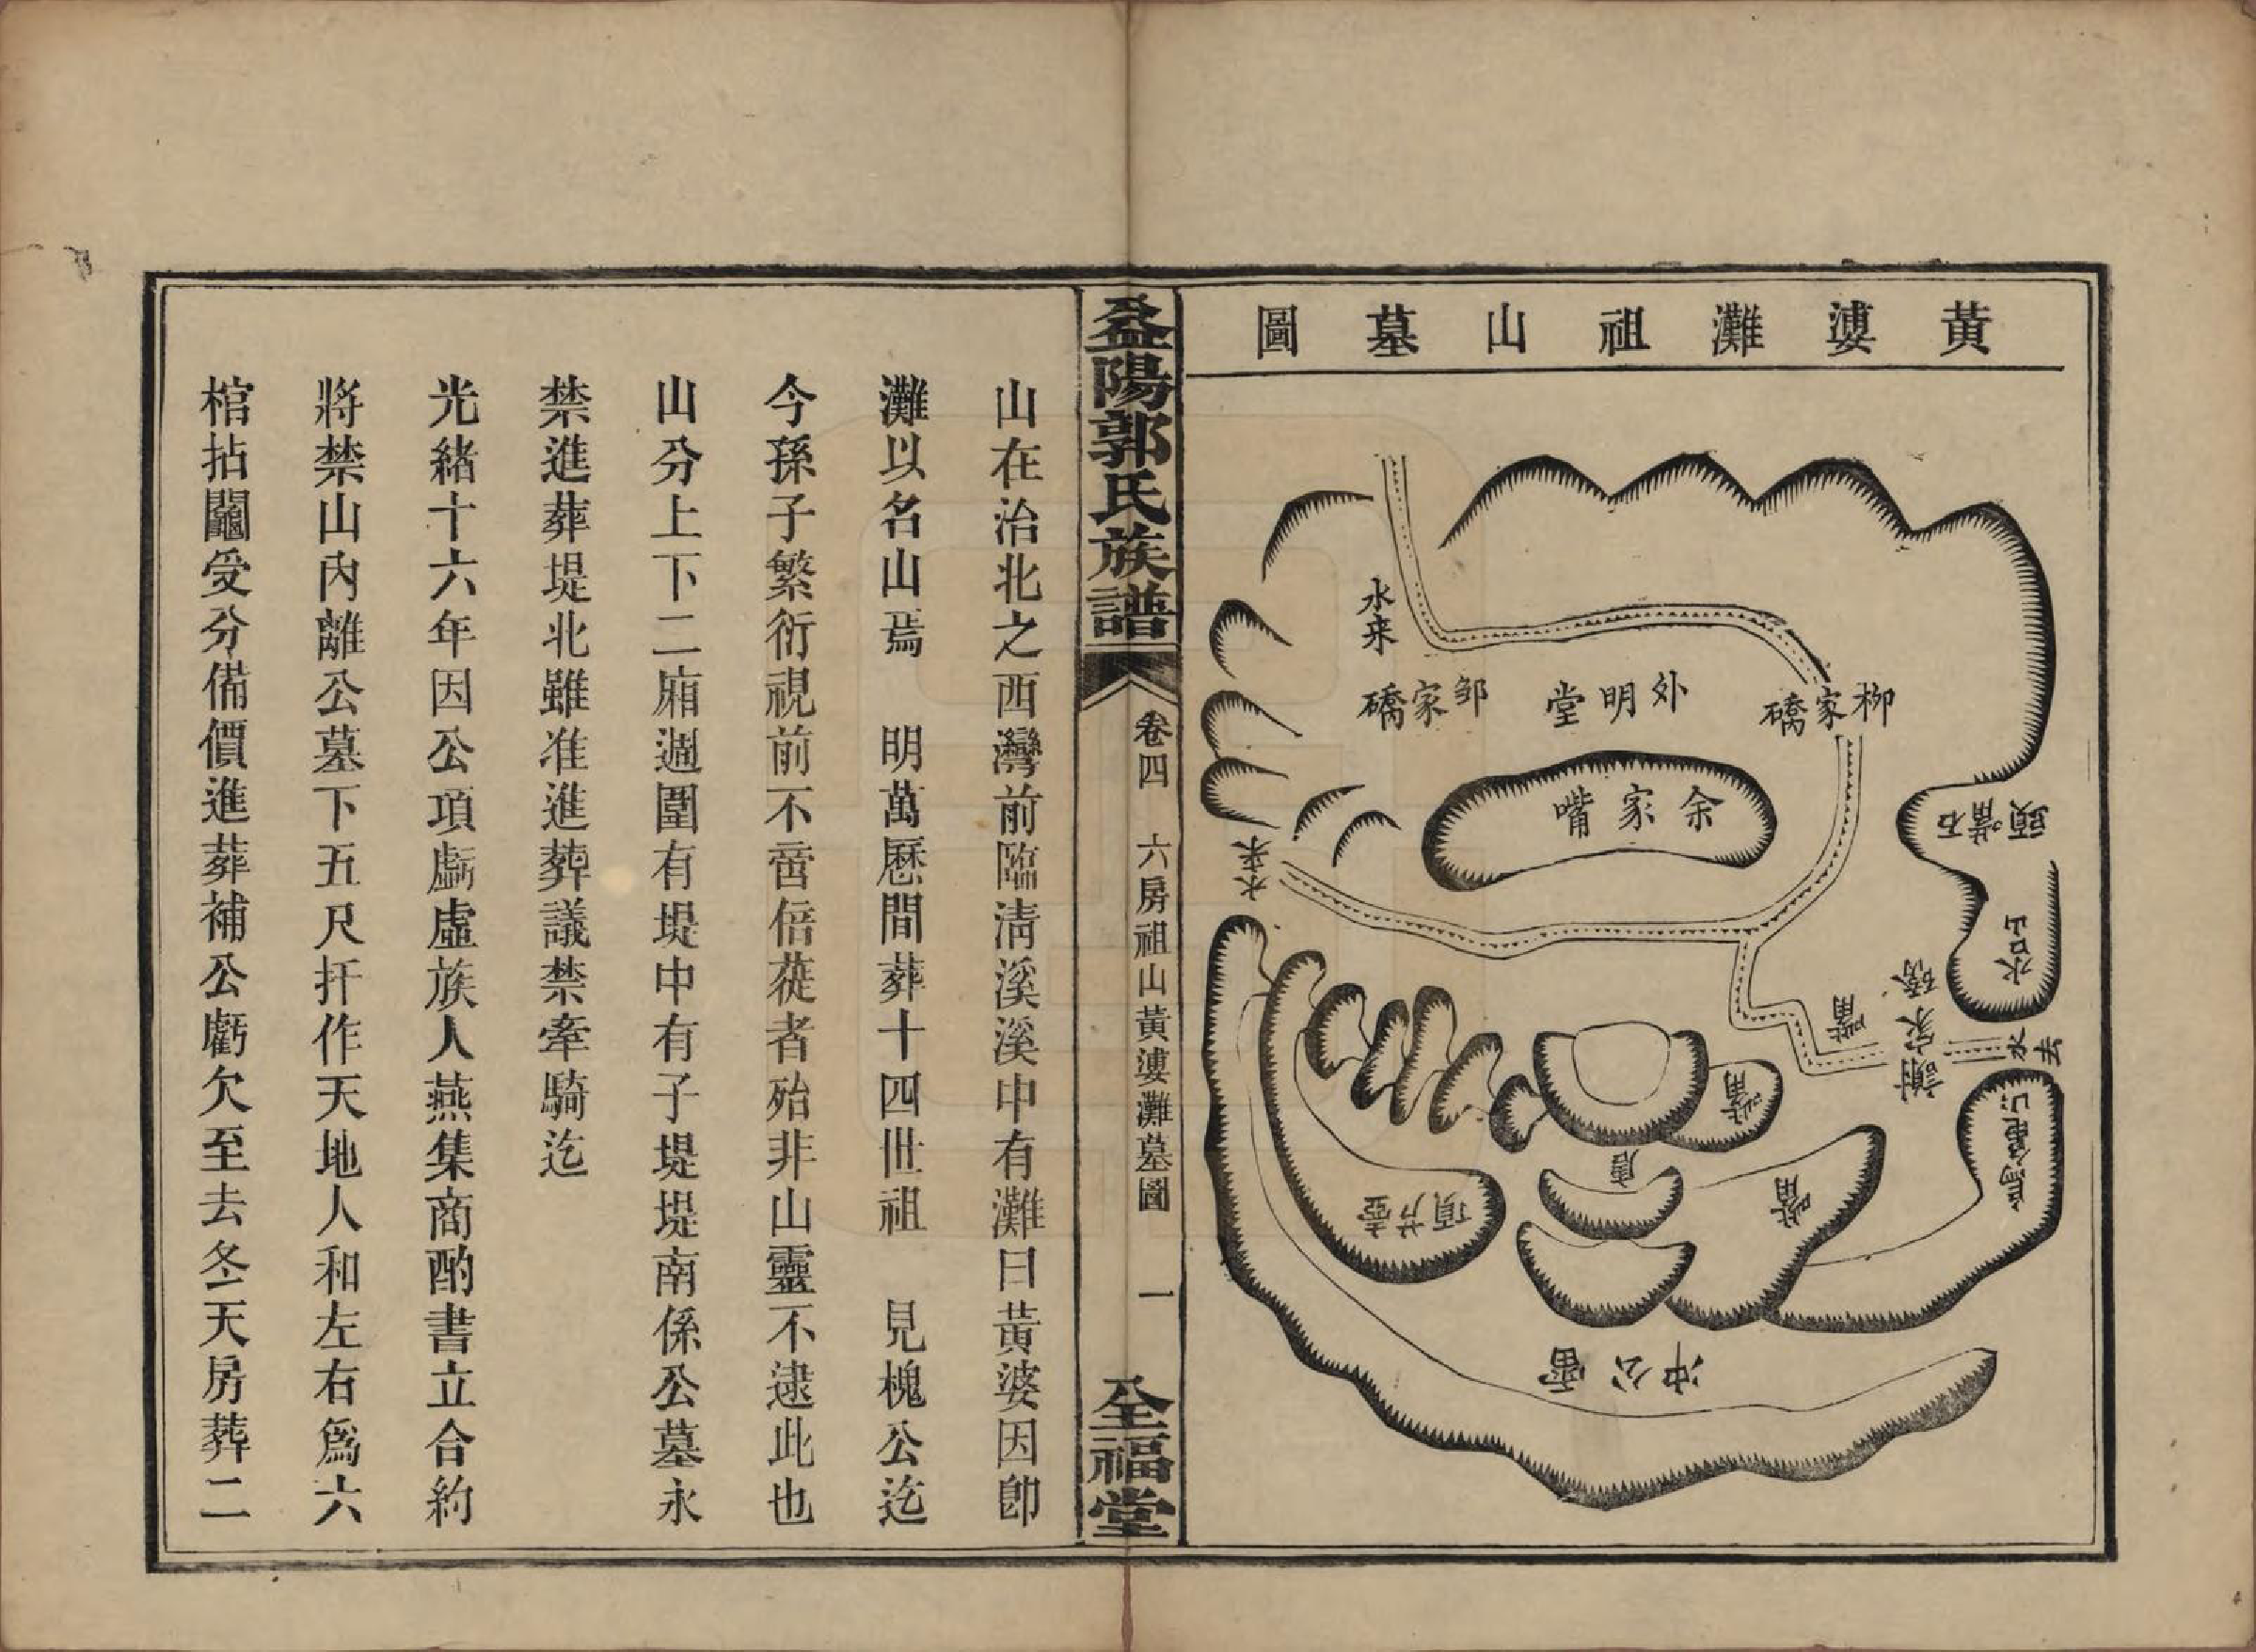 黃婆灘祖山墓圖
水來
鄒家礄
外明堂
柳家礄
余家嘴
石嘴頭
水來
水口山
謝家
嘴
水去
嘴
烏龜山
唐
嘴
雷公冲
益陽郭氏族譜
卷四
六房祖山黃婆灘墓圖
一
全福堂
山在治北之西灣前臨清溪溪中有灘曰黃婆因卽
灘以名山焉 明萬歷間葬十四世祖 見槐公迄
今孫子繁衍視前不啻倍蓰者殆非山靈不逮此也
山分上下二廂週圍有堤中有子堤堤南係公墓永
禁進葬堤北雖准進葬議禁牽騎迄
光緒十六年因公項虧虛族人燕集商酌書立合約
將禁山內離公墓下五尺扦作天地人和左右爲六
棺拈鬮受分備價進葬補公虧欠至去冬天房葬二